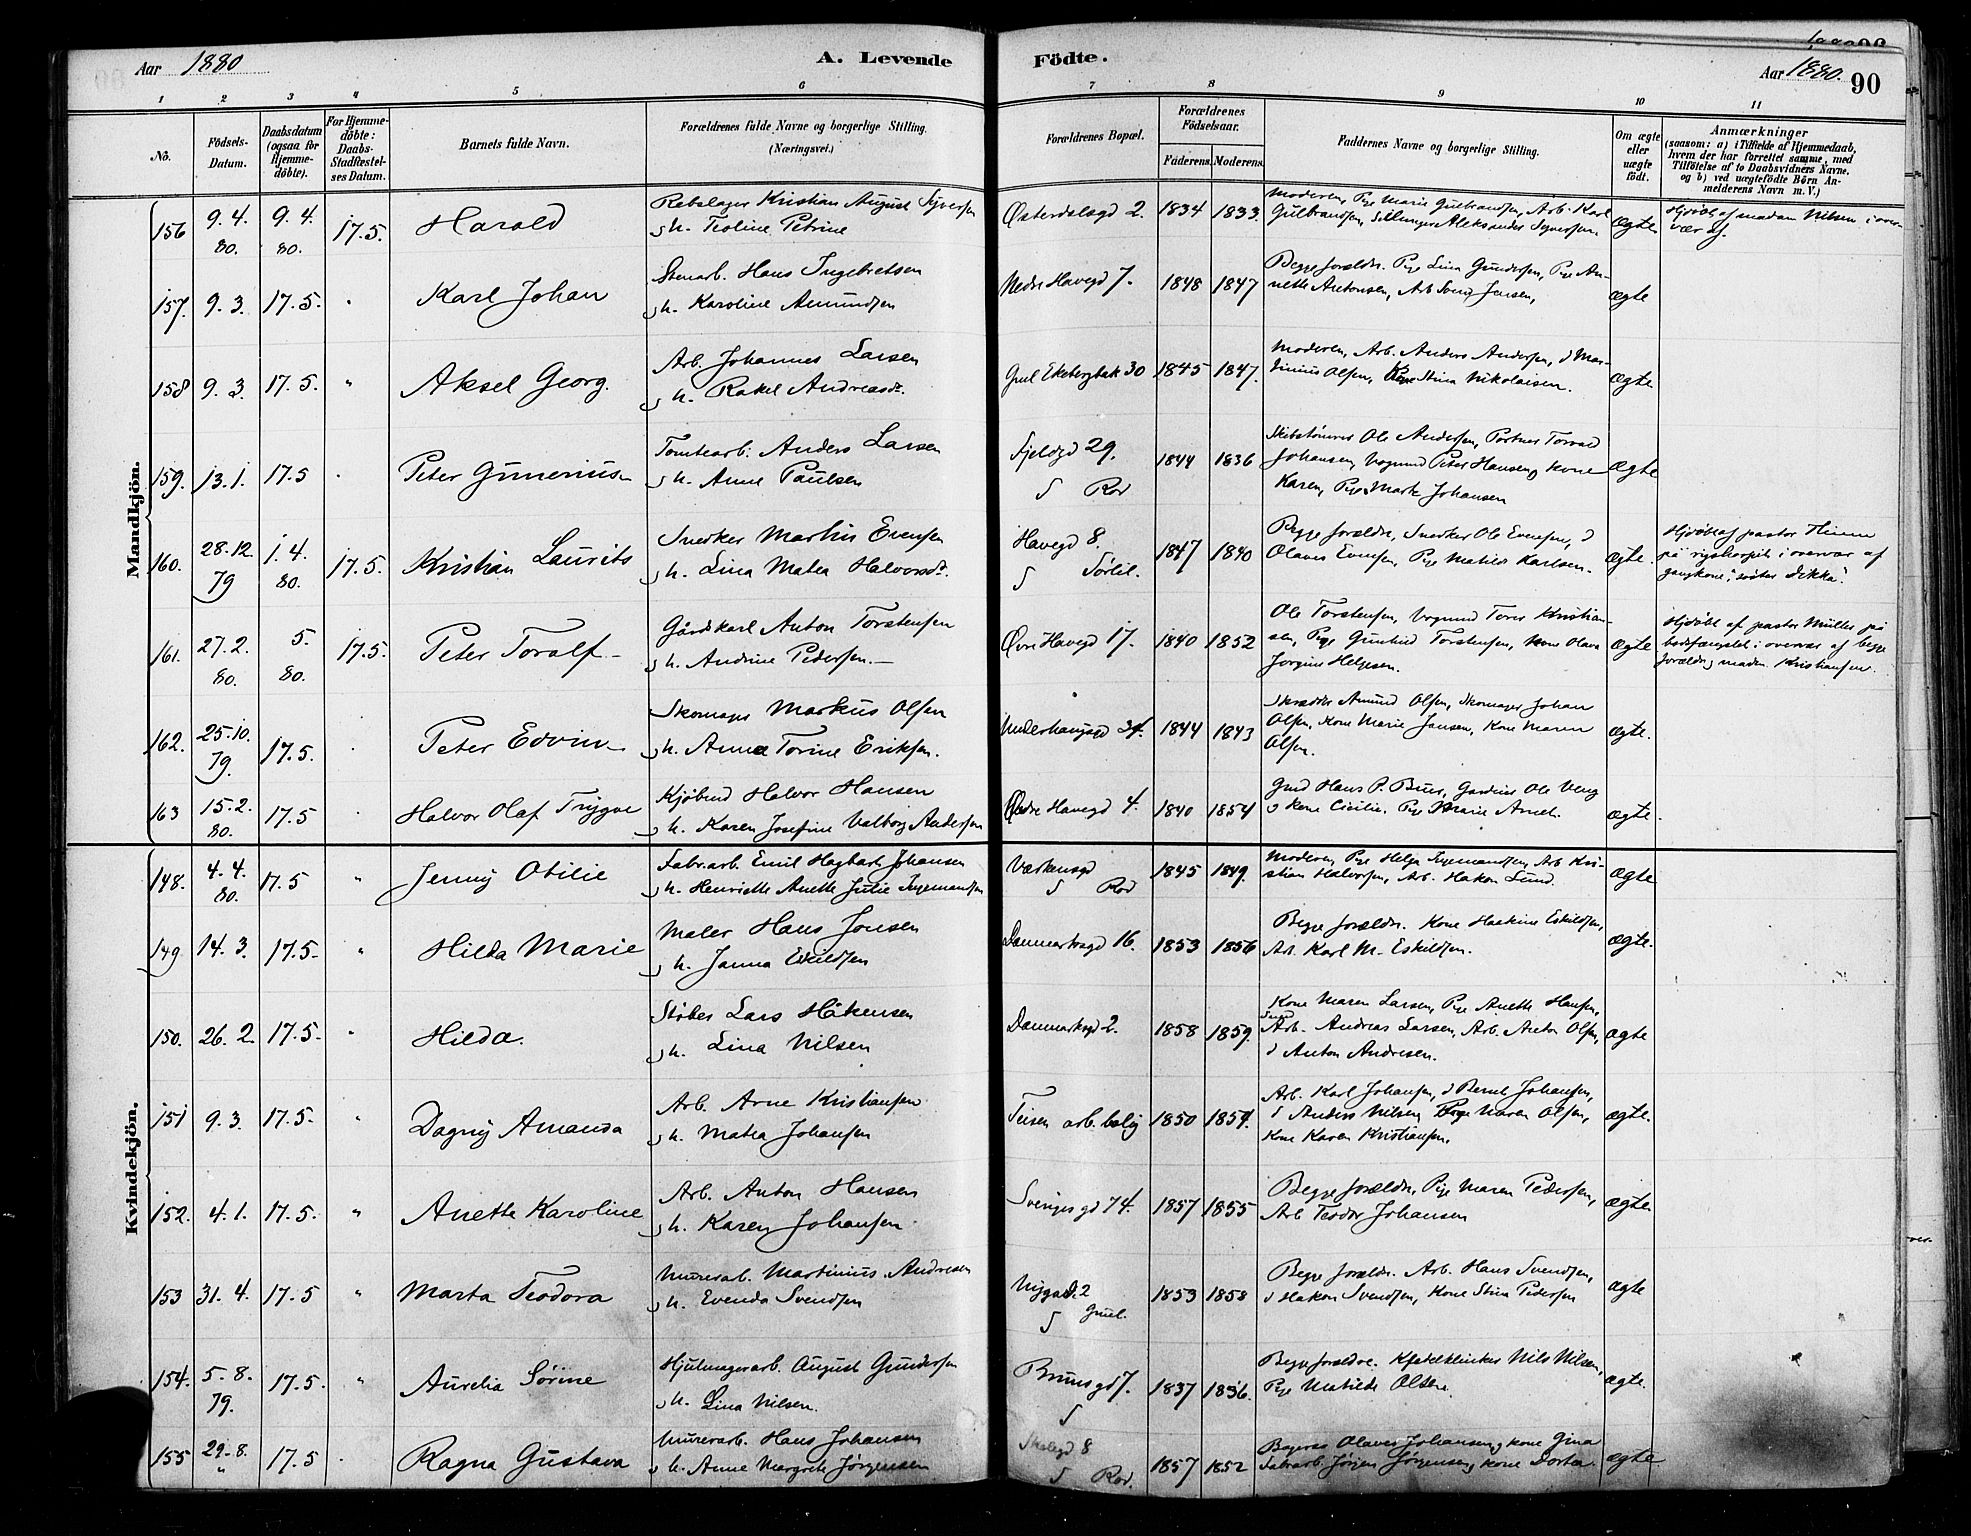 Aar 1880
A. Levende
Födte.
Aar 1880.
90
1 2 3 4 5 6 7 8 9 10 11
No.
Födsels-
Datum.
Daabsdatum
(ogsaa for
Hjemme-
döbte).
For Hjemme-
döbte:
Daabs-
Stadfæstel-
ses Datum.
Barnets fulde Navn.
Forældrenes fulde Navne og borgerlige Stilling.
(Næringsvei.)
Forældrenes Bopæl.
Forældrenes
Födselsaar.
Faderens. Moderens.
Faddernes Navne og borgerlige Stilling.
Om ægte
eller
uægte
födt.
Anmærkninger
(saasom: a) i Tilfælde af Hjemmedaab,
hvem der har forrettet samme, med
Tilföielse af to Daabsvidners Navne,
og b) ved uægtefödte Börn An-
melderens Navn m. V.)
Mandkjön.
156 9.4. 80. 9.4. 80. 17.5. Harald
Rebslager Kristian August Syversen
h. Teoline Petrine
Østerdalsgd 2. 1834 1833.
Moderen, Pige Marie Gulbrandsen, Arb. Karl
Gulbrandsen, Aleksander Syversen.
ægte
Hjdöbt af madam Nilsen i over-
vær af.
157. 9.3. 17.5. " Karl Johan
Stenarb. Hans Ingebretsen
h. Karoline Amundsen
Nedre Havegd 7. 1848 1847
Begge foreldre. Pige Lina Gundersen, Pige An-
nette Antonsen, Arb Svend Jensen,
ægte
158 9.3. 17.5. " Aksel Georg.
Arb. Johannes Larsen
h. Rakel Andreasdr.
Grul Ekebergbak 30 1845 1847.
Moderen, Arb. Anders Andersen, d Mar-
tinius Olsen, Stina Nikolaisen.
ægte
159. 13.1. 17.5 " Peter Gunerius
Tomtearb. Anders Larsen
h. Anne Paulsen
Fjeldgd 29.
Ror
1844 1836
Skibstömrer Ole Andersen, Portner Torvald
Johansen, Vognmd Peter Hansen, kone
Karen, Pige Johansen
ægte
160. 28.12. 79 1.4. 80. 17.5. Kristian Laurits
Snedker Martin Evensen
h. Lina Matea Halvorsdr.
Havegd 8.
1847 1840
Begge foreldre, Snedker Ole Evensen, d
Olaves Evensen, Pige Matilde Karlsen.
ægte.
Hjdöbt af pastor
på rigshospit. i overvær af
gangkone, "søster Dikka".
161. 27.2. 80. 5. 80. 17.5. Peter Toralf
Gårdskarl Anton Torstensen
h. Andrine Pedersen.
Øvre Havegd 17. 1840 1852
Ole Torstensen, Vognmd Tores Kristian-
sen, Pige Gunhild Torstensen, Kone Olava
Jorgine Helgesen.
ægte
Hjdöbt af pastor Müller på
bodsfængslet i overvær af begge
foreldre, madm. Kristiansen.
162. 25.10. 79. 17.5. " Peter Edvin
Skomager Markus Olsen
h. Anne Torine Eriksen.
34. 1844 1843
Skrædder Amund Olsen, Skomager Johan
Olsen, Kone Marie Jansen, Kone Maren
Olsen.
ægte.
163 15.2. 80. 17.5 " Halvor Olaf Trygve
Kjöbmd Halvor Hansen
h. Karen Josefine Valborg Andersen
Havegd 4. 1840 1854
Hans P. Bue, Ole
kone Cicilie, Pige Marie
ægte.
Kvindekjön.
148. 4.4. 80. 17.5 " Jenny Otilie
Fabr.arb. Emil Hagbart Johansen
h. Henriette Anette Julie Ingemandsen
Værkensgd
Rod
1845 1849.
Moderen, Pige Helga Ingemandsen, Arb Kri-
stian Halvorsen, Arb. Hakon Lund.
ægte
149 14.3. 17.5. " Hilda Marie
Maler Hans Jonsen
h. Janna Eskildsen
Danmarksgd 16. 1853 1856
Begge foreldr. Kone Haakine Eskildsen,
Arb. Karl M. Eskildsen.
ægte.
150. 26.2. 17.5. " Hilda.
Støber Lars Håkensen
h. Lina Nilsen
Danmarksgd 2. 1858 1859.
Kone Maren Larsen, Pige Anette Hansen,
Arb. Andreas Larsen, Arb. Anton Olsen,
d Anton Andresen.
ægte
151 9.3. 17.5. " Dagny Amanda
Arb. Arne Kristiansen
h. Matea Johansen
Teisen arb. bolig 1850 1854.
Arb. Karl Johansen, d Bernt Johansen,
d Anders Nilsen, Pige Maren Olsen,
Kone Karen Kristiansen.
ægte.
152. 4.1. 17.5. " Anette Karoline
Arb. Anton Hansen
h. Karen Johansen
Sverigesgd 74. 1857 1855
Begge foreldre, Pige Maren Pedersen,
Arb Teodor Johansen
ægte
153 31.4. 17.5 " Marta Teodora
Murerarb. Martinius Andresen
h. Evenda Svendsen
Nygad. 2
Grul.
1853 1858
Begge foreldre. Arb. Hans Svendsen,
d Hakon Svendsen, Kone Stina Pedersen
ægte
154. 5.8. 79. 17.5. " Aurelia Sörine
Hjulmagerarb. August Gundersen
h. Lina Nilsen.
Brunsgd 7. 1837 1836.
Begge foreldre. Nils Nilsen,
Pige Matilde Olsen.
ægte.
155 29.8. " 17.5 " Ragna Gustava
Murerarb. Hans Johansen
h. Anne Margrete Jørgensen
Skolegd 8
Ror.
1857 1852
Olaves Johansen, kone Gina
Fabrarb. Jörgen Jörgensen, kone Dortea.
ægte.